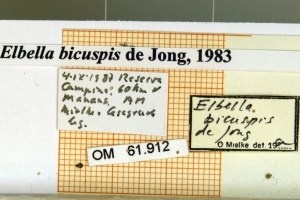 Elbella bicuspis de Jong, 1983
4-IX-1981 Reserva
Campina, 60km N
Manaus, AM
Mielke, Casagrande
leg.
Elbella
bicuspis
de Jong
O Mielke det. 19
OM 61.912